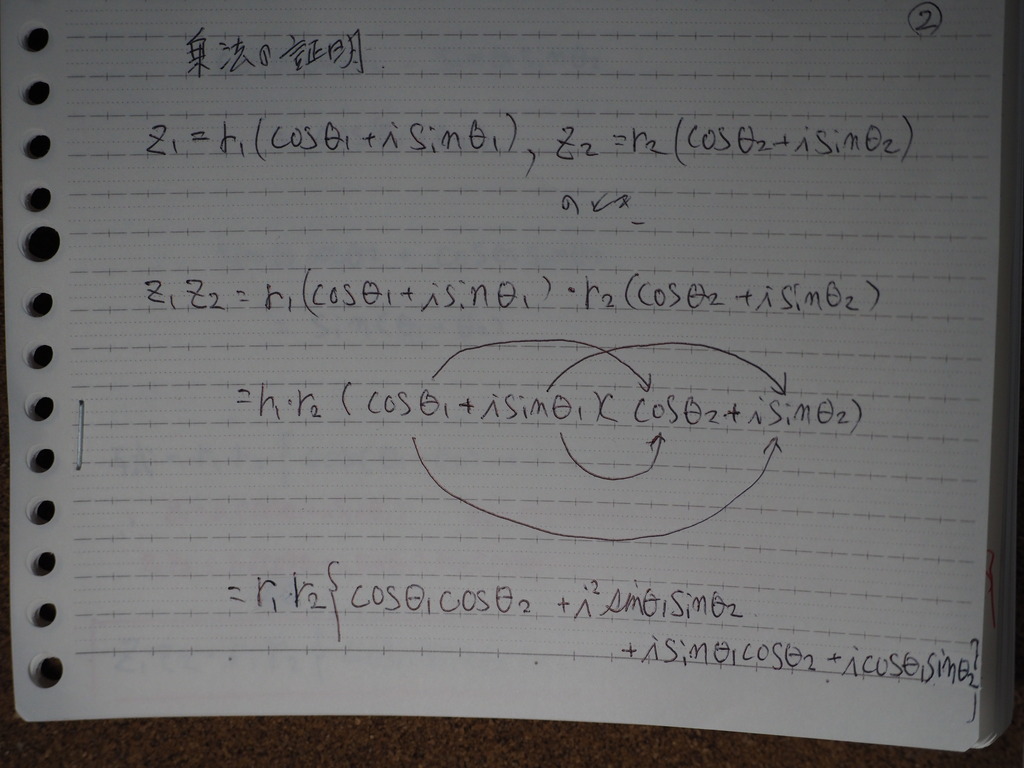 ②
乗法の証明.
z₁ = r₁(cosθ₁ + i sinθ₁), z₂ = r₂(cosθ₂ + i sinθ₂)
のとき
z₁z₂ = r₁(cosθ₁ + i sinθ₁)・r₂(cosθ₂ + i sinθ₂)
= r₁・r₂ (cosθ₁ + i sinθ₁)(cosθ₂ + i sinθ₂)
= r₁・r₂{cosθ₁cosθ₂ + i² sinθ₁sinθ₂
+ i sinθ₁cosθ₂ + i cosθ₁sinθ₂}